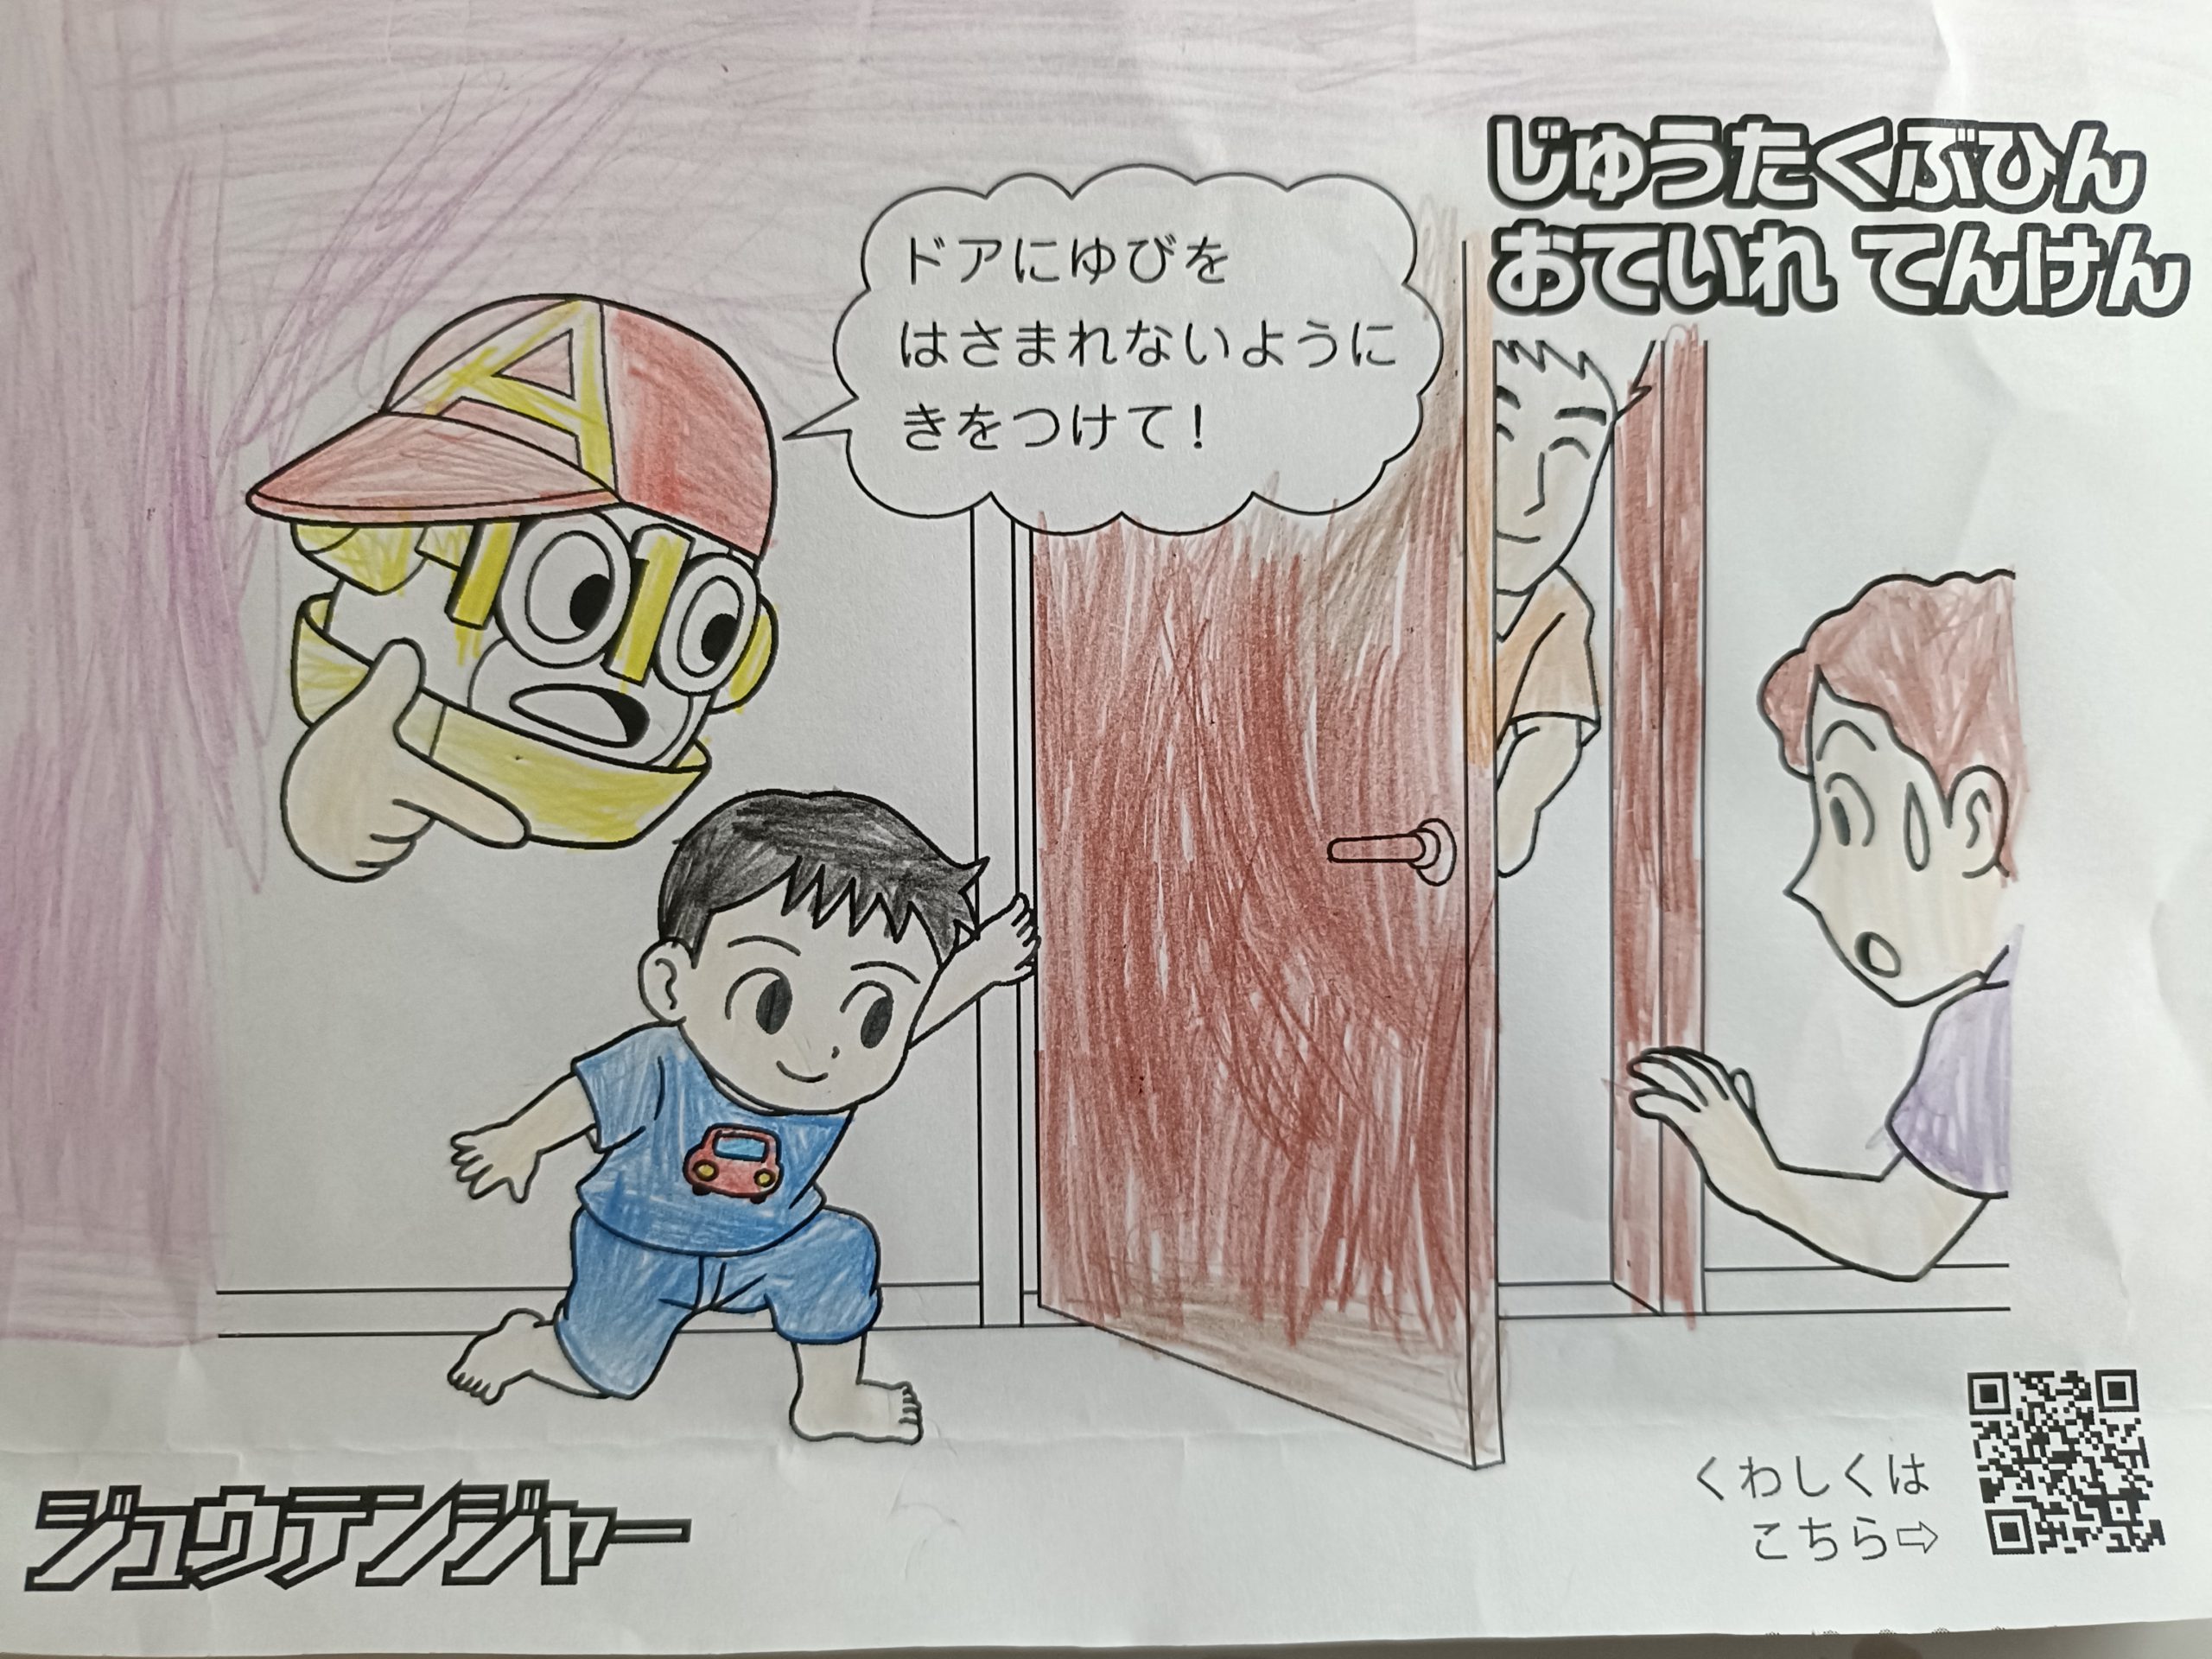 じゅうたくぶひん
おていれ てんけん
ドアにゆびを
はさまれないように
きをつけて!
A
10 10
くわしくは
こちら⇨
ジュウテンジャー